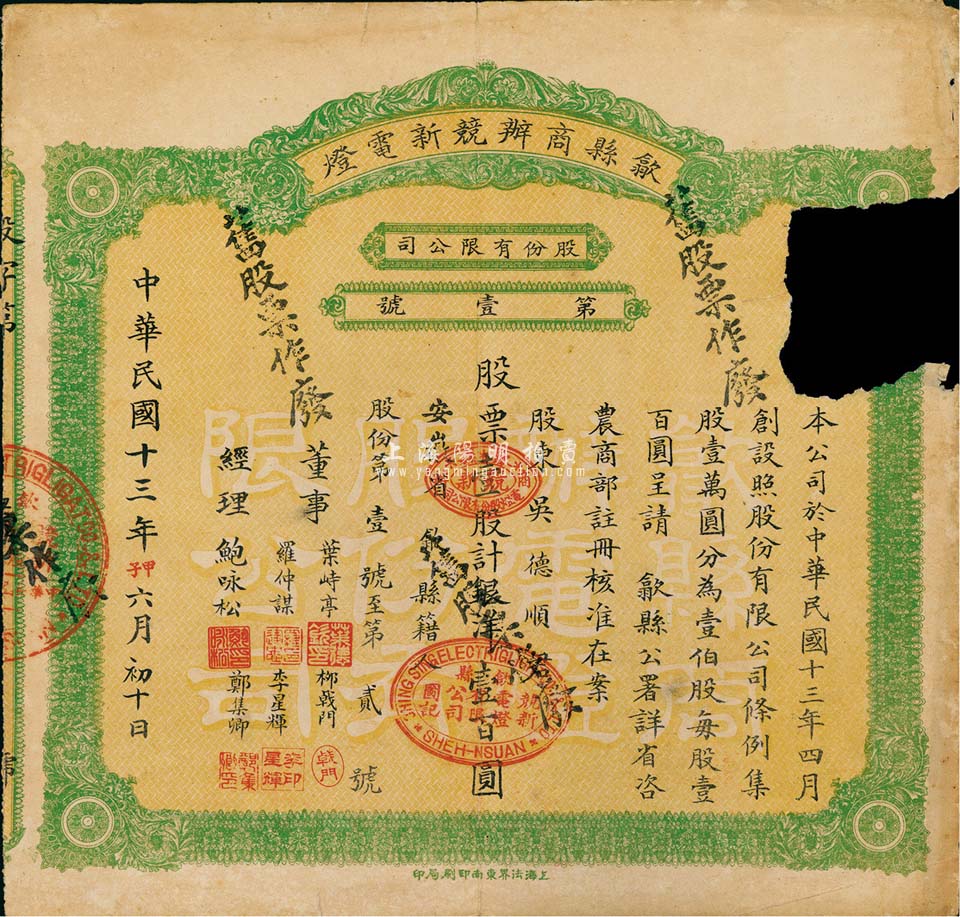 歙縣商辦競新電燈
股份有限公司
第壹號
本公司於中華民國十三年四月
創設照股份有限公司條例集
股壹萬圓分為壹伯股每股壹
百圓呈請　歙縣公署詳省咨
農商部註冊核准在案
股東　吳德順
股票壹股計銀洋壹百圓
安省　縣籍
股份第壹號至第貳號
董事　葉峙亭　柳戟門
羅仲謀　李星輝
經理　鮑咏松　鄭集卿
中華民國十三年甲子六月初十日
舊股票作廢
舊股票作廢
上海陽明拍賣
www.yangmingauction.com
SHEH-HSUAN
競新
電燈
公司
圖記
戟門
李印星輝
上海法界東南印刷局印